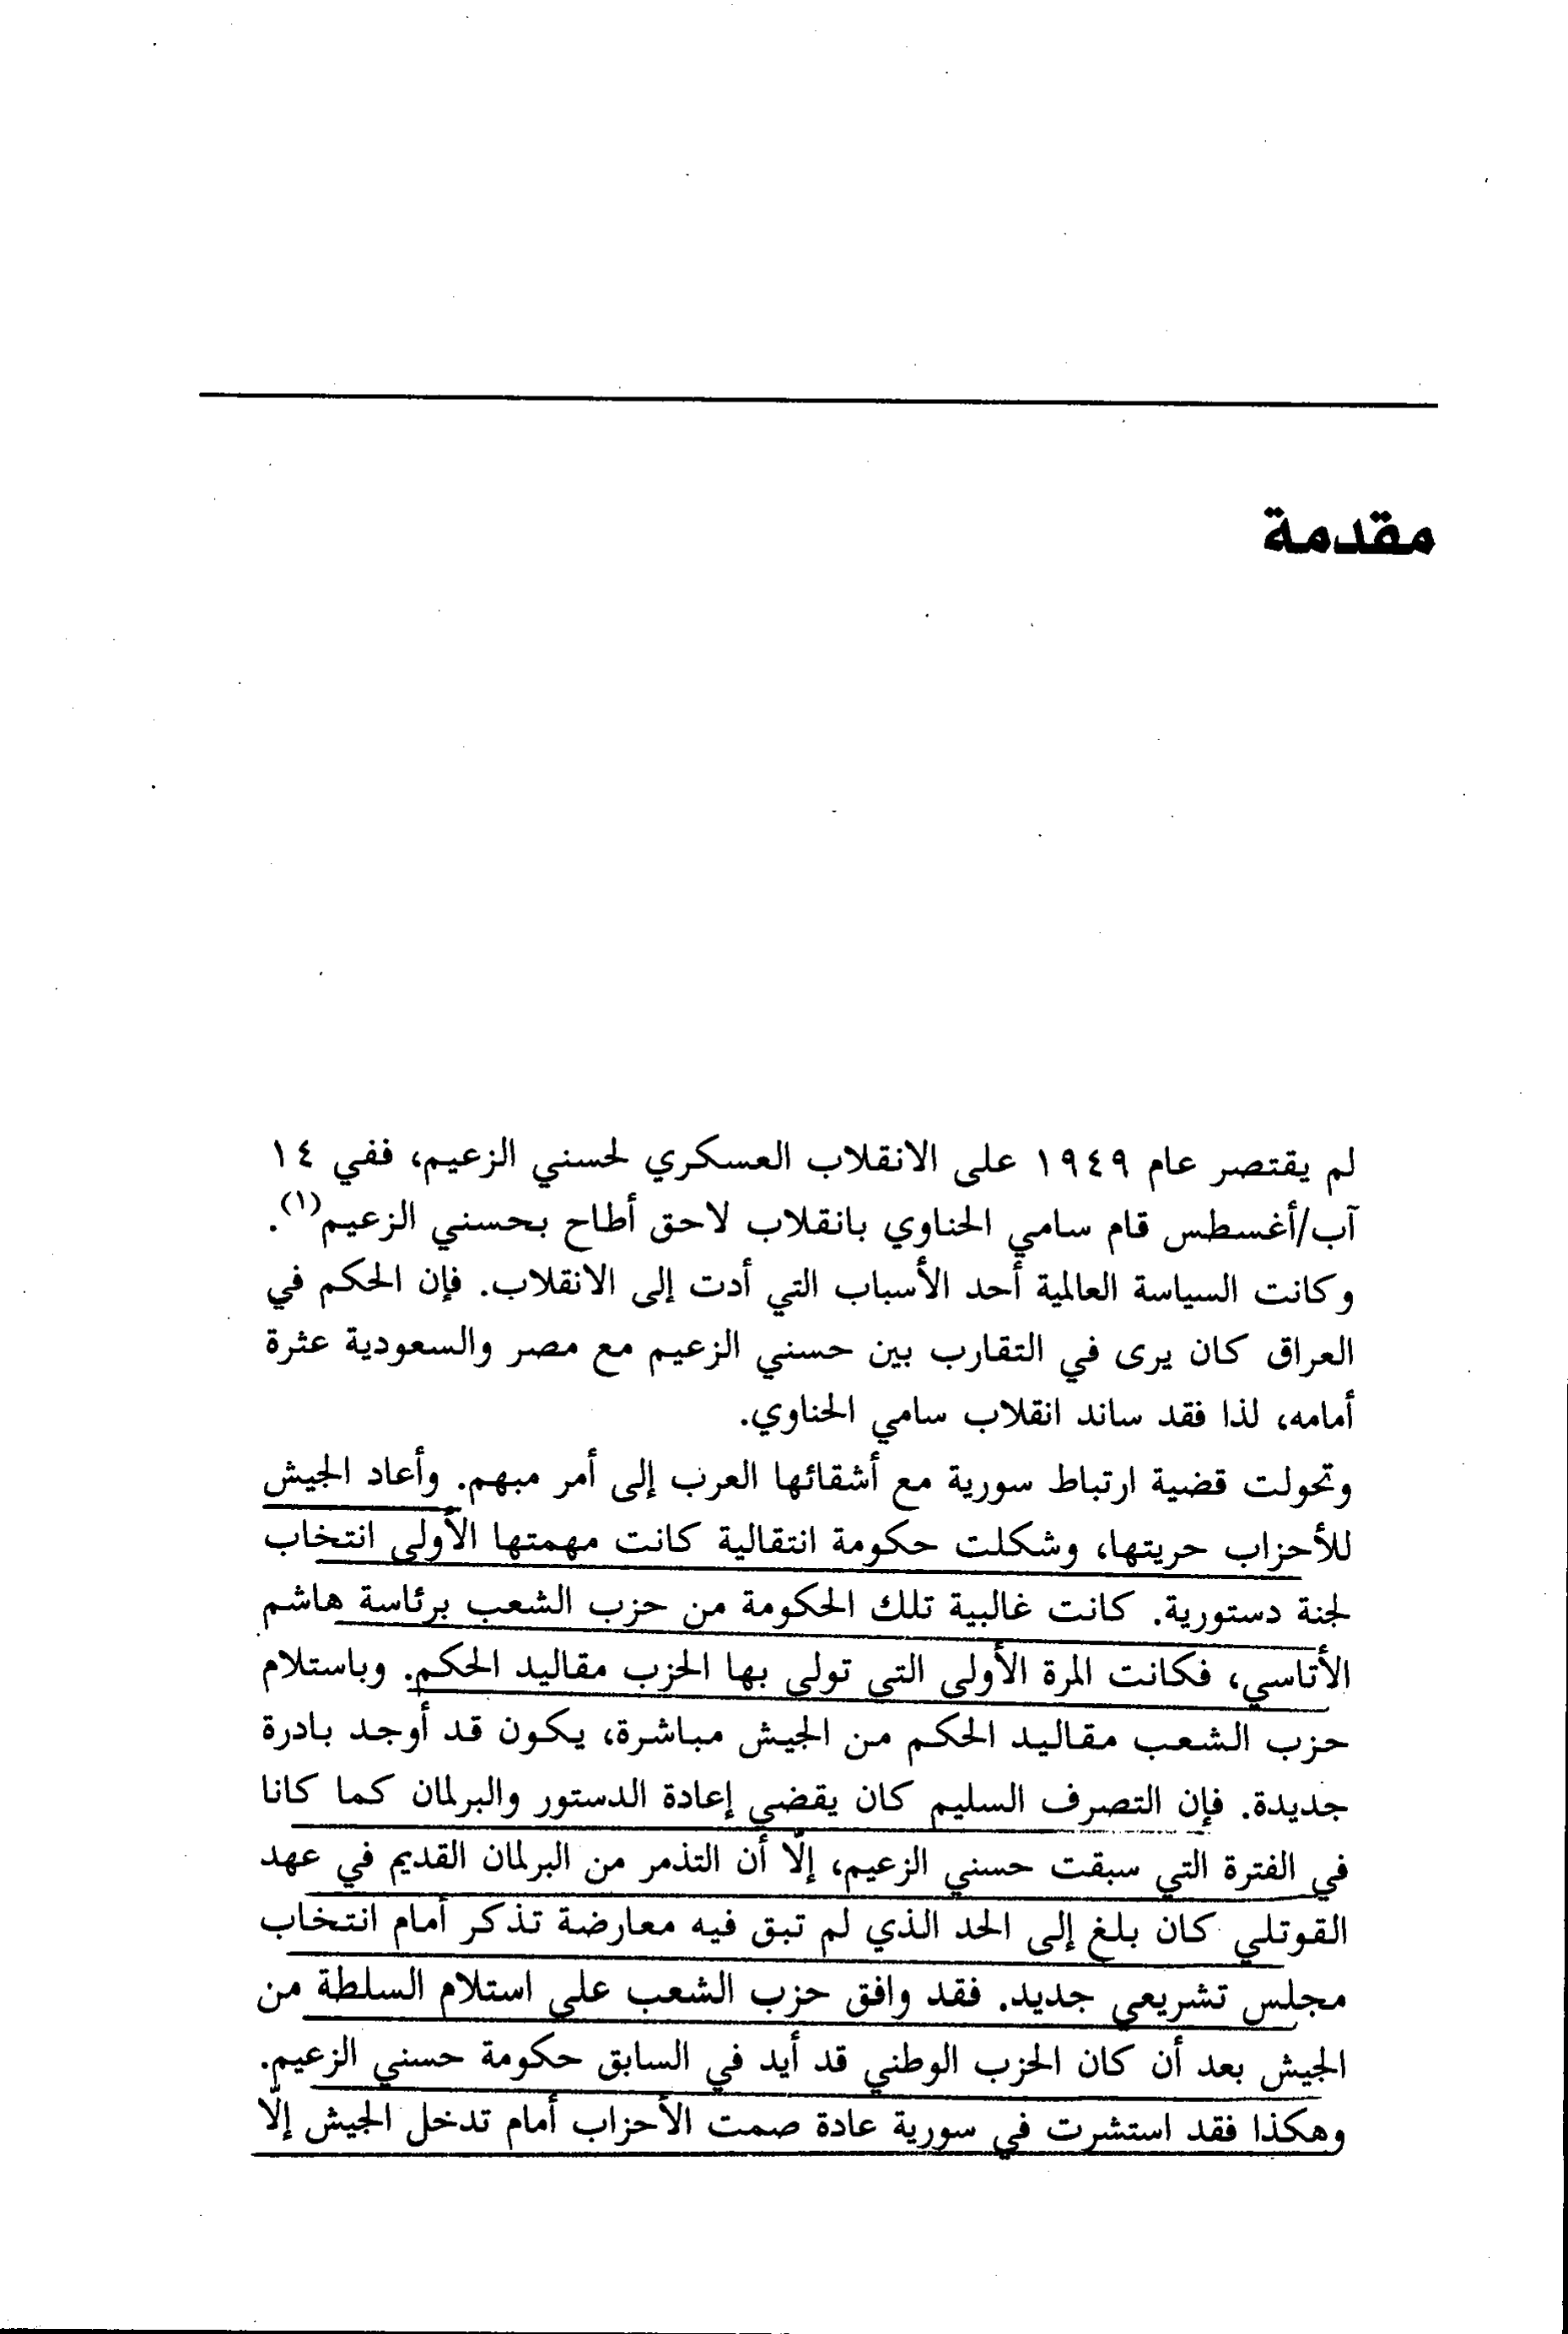 مقدمة
لم يقتصر عام ١٩٤٩ على الانقلاب العسكري لحسني الزعيم، ففي ١٤
آب/أغسطس قام سامي الحناوي بانقلاب لاحق أطاح بحسني الزعيم(١).
وكانت السياسة العالمية أحد الأسباب التي أدت إلى الانقلاب. فإن الحكم في
العراق كان يرى في التقارب بين حسني الزعيم مع مصر والسعودية عثرة
أمامه، لذا فقد ساند انقلاب سامي الحناوي.
وتحولت قضية ارتباط سورية مع أشقائها العرب إلى أمر مبهم. وأعاد الجيش
للأحزاب حريتها، وشكلت حكومة انتقالية كانت مهمتها الأولى انتخاب
لجنة دستورية. كانت غالبية تلك الحكومة من حزب الشعب برئاسة هاشم
الأتاسي، فكانت المرة الأولى التي تولى بها الحزب مقاليد الحكم. وباستلام
حزب الشعب مقاليد الحكم من الجيش مباشرة، يكون قد أوجد بادرة
جديدة. فإن التصرف السليم كان يقضي إعادة الدستور والبرلمان كما كانا
في الفترة التي سبقت حسني الزعيم، إلّا أن التذمر من البرلمان القديم في عهد
القوتلي كان بلغ إلى الحد الذي لم تبق فيه معارضة تذكر أمام انتخاب
مجلس تشريعي جديد. فقد وافق حزب الشعب على استلام السلطة من
الجيش بعد أن كان الحزب الوطني قد أيد في السابق حكومة حسني الزعيم.
وهكذا فقد استشرت في سورية عادة صمت الأحزاب أمام تدخل الجيش إلّا